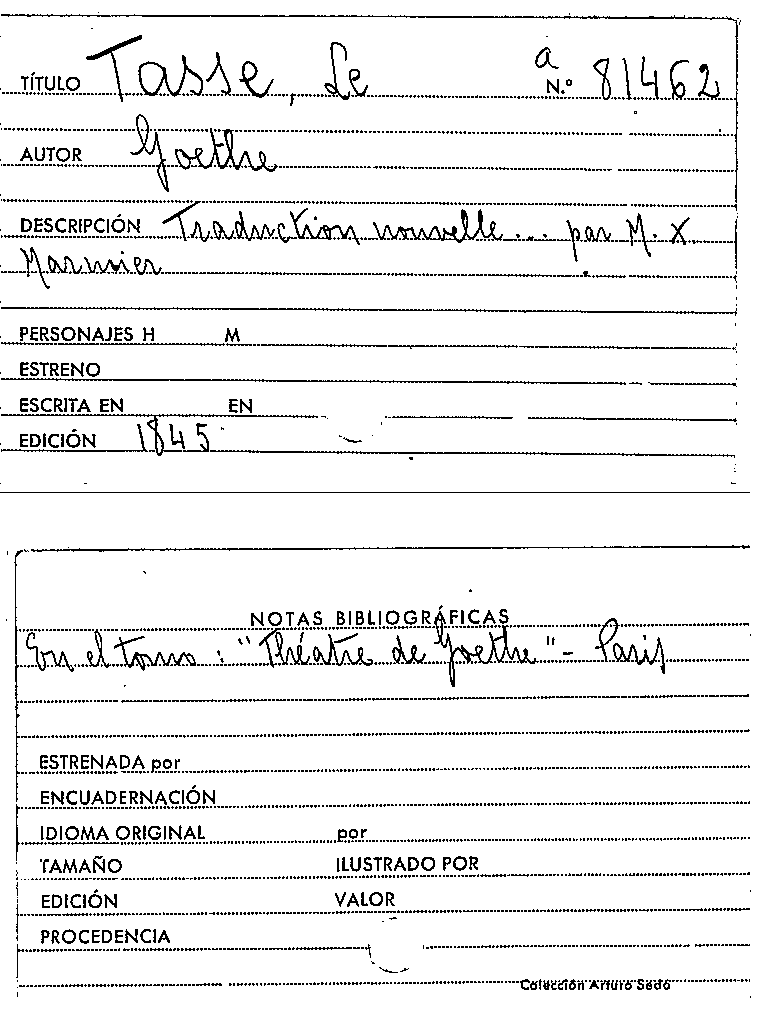 TÍTULO Tasse, Le a N.º 81462
AUTOR Goethe
DESCRIPCIÓN Traduction nouvelle... par M. X.
Marmier
PERSONAJES H M
ESTRENO
ESCRITA EN EN
EDICIÓN 1845
NOTAS BIBLIOGRÁFICAS
En el tomo: "Théatre de Goethe" - Paris
ESTRENADA por
ENCUADERNACIÓN
IDIOMA ORIGINAL por
TAMAÑO ILUSTRADO POR
EDICIÓN VALOR
PROCEDENCIA
Colección Arturo Sedó